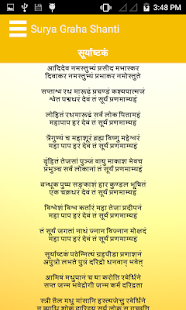 3:48 PM
Surya Graha Shanti
सूर्याष्टकं
आदिदेव नमस्तुभ्यं प्रसीद मभास्कर
दिवाकर नमस्तुभ्यं प्रभाकर नमोस्तुते
सप्ताश्व रध मारूढं प्रचण्डं कश्यपात्मजं
श्वेत पद्मधर देव तं सूर्यं प्रणमाम्यहं
लोहितं रधमारूढं सर्व लोक पितामहं
महा पाप हर देव तं सूर्यं प्रणमाम्यहं
त्रैगुण्यं च महाशूरं ब्रह्म विष्णु महेश्वरं
महा पाप हरं देवं तं सूर्यं प्रणमाम्यहं
बृंहितं तेजसां पुञ्जं वायु माकाश मेवच
प्रभुञ्च सर्व लोकानां तं सूर्यं प्रणमाम्यहं
बन्धूक पुष्प सङ्काशं हार कुण्डल भूषितं
एक चक्रधरं देवं तं सूर्यं प्रणमाम्यहं
विश्वेशं विश्व कर्तारं महा तेजः प्रदीपनं
महा पाप हरं देवं तं सूर्यं प्रणमाम्यहं
तं सूर्यं जगतां नाधं ज्नान विज्नान मोक्षदं
महा पाप हरं देवं तं सूर्यं प्रणमाम्यहं
सूर्याष्टकं पठेन्नित्यं ग्रहपीडा प्रणाशनं
अपुत्रो लभते पुत्रं दरिद्रो धनवान् भवेत्
आमिषं मधुपानं च यः करोति रवेर्धिने
सप्त जन्म भवेद्रोगी जन्म कर्म दरिद्रता
स्त्री तैल मधु मांसानि हस्त्यजेत्तु रवेर्धिने